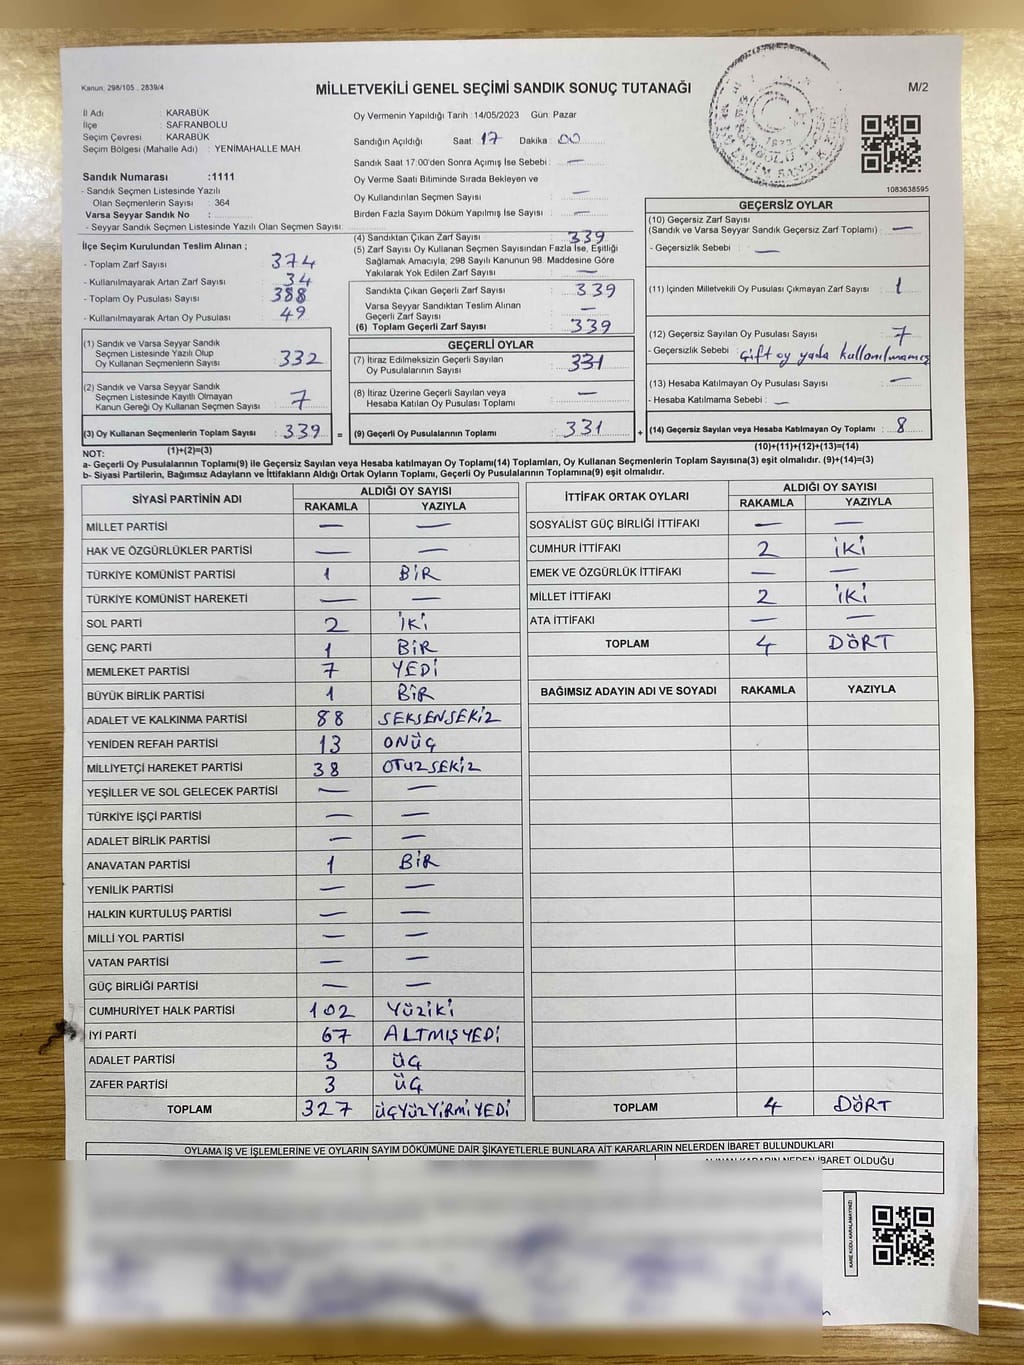 Kanun, 298/105 . 2839/4
MİLLETVEKİLİ GENEL SEÇİMİ SANDIK SONUÇ TUTANAĞI
M/2
İl Adı : KARABÜK
İlçe : SAFRANBOLU
Seçim Çevresi : KARABÜK
Seçim Bölgesi (Mahalle Adı) : YENİMAHALLE MAH.
Sandık Numarası :1111
- Sandık Seçmen Listesinde Yazılı
Olan Seçmenlerin Sayısı : 364
Varsa Seyyar Sandık No :
- Seyyar Sandık Seçmen Listesinde Yazılı Olan Seçmen Sayısı:
Oy Vermenin Yapıldığı Tarih : 14/05/2023 Gün: Pazar
Sandığın Açıldığı Saat: 17 Dakika : 00
Sandık Saat 17:00'den Sonra Açımış İse Sebebi : —
Oy Verme Saati Bitiminde Sırada Bekleyen ve
Oy Kullandırılan Seçmen Sayısı : —
Birden Fazla Sayım Döküm Yapılmış İse Sayısı : —
1083638595
İlçe Seçim Kurulundan Teslim Alınan ;
- Toplam Zarf Sayısı : 374
- Kullanılmayarak Artan Zarf Sayısı : 34
- Toplam Oy Pusulası Sayısı : 388
- Kullanılmayarak Artan Oy Pusulası : 49
(1) Sandık ve Varsa Seyyar Sandık
Seçmen Listesinde Yazılı Olup
Oy Kullanan Seçmenlerin Sayısı : 332
(2) Sandık ve Varsa Seyyar Sandık
Seçmen Listesinde Kayıtlı Olmayan
Kanun Gereği Oy Kullanan Seçmen Sayısı : 7
(3) Oy Kullanan Seçmenlerin Toplam Sayısı : 339 =
(1)+(2)=(3)
(4) Sandıktan Çıkan Zarf Sayısı : 339
(5) Zarf Sayısı Oy Kullanan Seçmen Sayısından Fazla İse, Eşitliği
Sağlamak Amacıyla, 298 Sayılı Kanunun 98. Maddesine Göre
Yakılarak Yok Edilen Zarf Sayısı : —
Sandıkta Çıkan Geçerli Zarf Sayısı : 339
Varsa Seyyar Sandıktan Teslim Alınan
Geçerli Zarf Sayısı : —
(6) Toplam Geçerli Zarf Sayısı : 339
GEÇERLİ OYLAR
(7) İtiraz Edilmeksizin Geçerli Sayılan
Oy Pusulalarının Sayısı : 331
(8) İtiraz Üzerine Geçerli Sayılan veya
Hesaba Katılan Oy Pusulası Toplamı : —
(9) Geçerli Oy Pusulalarının Toplamı : 331 +
GEÇERSİZ OYLAR
(10) Geçersiz Zarf Sayısı
(Sandık ve Varsa Seyyar Sandık Geçersiz Zarf Toplamı) : —
- Geçersizlik Sebebi : —
(11) İçinden Milletvekili Oy Pusulası Çıkmayan Zarf Sayısı : 1
(12) Geçersiz Sayılan Oy Pusulası Sayısı : 7
- Geçersizlik Sebebi : çift oy yada kullanılmamış
(13) Hesaba Katılmayan Oy Pusulası Sayısı : —
- Hesaba Katılmama Sebebi : —
(14) Geçersiz Sayılan veya Hesaba Katılmayan Oy Toplamı : 8
(10)+(11)+(12)+(13)=(14)
NOT:
a- Geçerli Oy Pusulalarının Toplamı(9) ile Geçersiz Sayılan veya Hesaba katılmayan Oy Toplamı(14) Toplamları, Oy Kullanan Seçmenlerin Toplam Sayısına(3) eşit olmalıdır. (9)+(14)=(3)
b- Siyasi Partilerin, Bağımsız Adayların ve İttifakların Aldığı Ortak Oyların Toplamı, Geçerli Oy Pusulalarının Toplamına(9) eşit olmalıdır.
SİYASİ PARTİNİN ADI ALDIĞI OY SAYISI
RAKAMLA YAZIYLA
MİLLET PARTİSİ — —
HAK VE ÖZGÜRLÜKLER PARTİSİ — —
TÜRKİYE KOMÜNİST PARTİSİ 1 BİR
TÜRKİYE KOMÜNİST HAREKETİ — —
SOL PARTİ 2 İKİ
GENÇ PARTİ 1 BİR
MEMLEKET PARTİSİ 7 YEDİ
BÜYÜK BİRLİK PARTİSİ 1 BİR
ADALET VE KALKINMA PARTİSİ 88 SEKSENSEKİZ
YENİDEN REFAH PARTİSİ 13 ONÜÇ
MİLLİYETÇİ HAREKET PARTİSİ 38 OTUZSEKİZ
YEŞİLLER VE SOL GELECEK PARTİSİ — —
TÜRKİYE İŞÇİ PARTİSİ — —
ADALET BİRLİK PARTİSİ — —
ANAVATAN PARTİSİ 1 BİR
YENİLİK PARTİSİ — —
HALKIN KURTULUŞ PARTİSİ — —
MİLLİ YOL PARTİSİ — —
VATAN PARTİSİ — —
GÜÇ BİRLİĞİ PARTİSİ — —
CUMHURİYET HALK PARTİSİ 102 YÜZİKİ
İYİ PARTİ 67 ALTMIŞYEDİ
ADALET PARTİSİ 3 ÜÇ
ZAFER PARTİSİ 3 ÜÇ
TOPLAM 327 ÜÇYÜZYİRMİYEDİ
İTTİFAK ORTAK OYLARI ALDIĞI OY SAYISI
RAKAMLA YAZIYLA
SOSYALİST GÜÇ BİRLİĞİ İTTİFAKI — —
CUMHUR İTTİFAKI 2 İKİ
EMEK VE ÖZGÜRLÜK İTTİFAKI — —
MİLLET İTTİFAKI 2 İKİ
ATA İTTİFAKI — —
TOPLAM 4 DÖRT
BAĞIMSIZ ADAYIN ADI VE SOYADI RAKAMLA YAZIYLA
TOPLAM 4 DÖRT
OYLAMA İŞ VE İŞLEMLERİNE VE OYLARIN SAYIM DÖKÜMÜNE DAİR ŞİKAYETLERLE BUNLARA AİT KARARLARIN NELERDEN İBARET BULUNDUKLARI
ALINAN KARARIN NEDEN İBARET OLDUĞU
KARE KODU KARALAMAYINIZ!